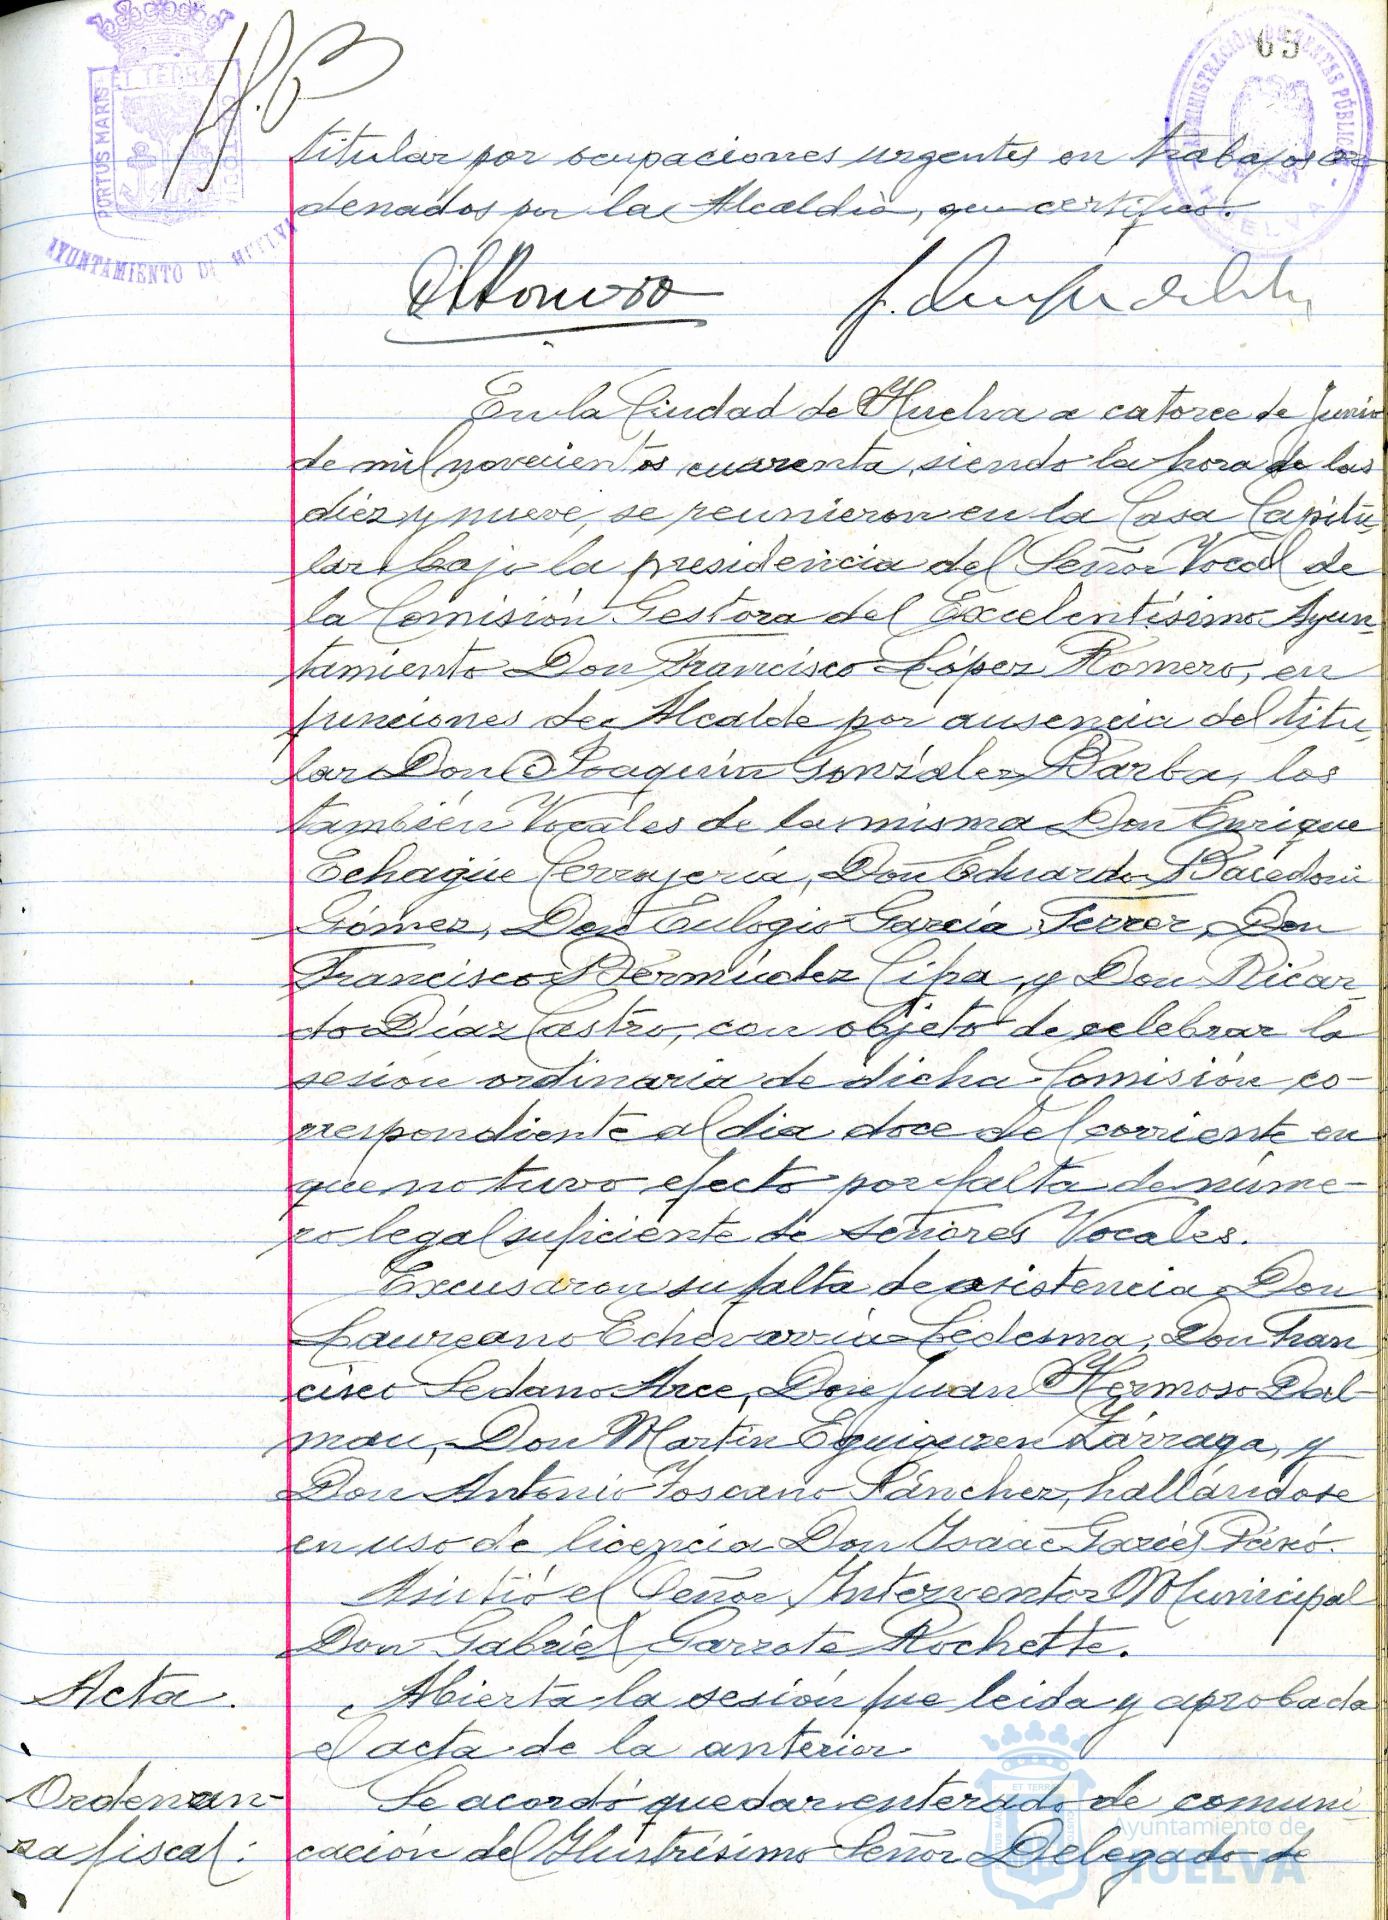 65
ET TERRÆ
PORTUS MARIS
CUSTODIA
AYUNTAMIENTO DE HUELVA
ADMINISTRACIÓN DE RENTAS PÚBLICAS
- HUELVA -
titular por ocupaciones urgentes en trabajos or-
denados por la Alcaldia, que certifico.
En la Ciudad de Huelva a catorce de Junio
de mil novecientos cuarenta, siendo la hora de las
diéz y nueve, se reunieron en la Casa Capitu-
lar bajo la presidencia del Señor Vocal de
la Comisión Gestora del Excelentísimo Ayun-
tamiento Don Francisco López Romero, en
funciones de Alcalde por ausencia del titu-
lar Don Joaquín González Barba, los
también Vocales de la misma Don Enrique
Echagüe Cerrajería, Don Eduardo Bacedoni
Gómez, Don Eulogio García Ferrer, Don
Francisco Bermúdez Cipa, y Don Ricar-
do Díaz Castro, con objeto de celebrar la
sesión ordinaria de dicha Comisión co-
rrespondiente al dia doce del corriente en
que no tuvo efecto por falta de núme-
ro legal suficiente de Señores Vocales.
Excusaron su falta de asistencia Don
Laureano Echevarría Ledesma, Don Fran-
cisco Sedano Arce, Don Juan Hermoso Dal-
mau, Don Martín Eguiguren Zárraga, y
Don Antonio Toscano Sánchez, hallándose
en uso de licencia Don Isaac
Asistió el Señor Interventor Municipal
Don Gabriel Garrote Rochette.
Acta.
Abierta la sesión fue leida y aprobada
el acta de la anterior.
Ordenan-
za fiscal:
Se acordó quedar enterado de comuni-
cación del Ilustrísimo Señor Delegado de
Ayuntamiento de
HUELVA